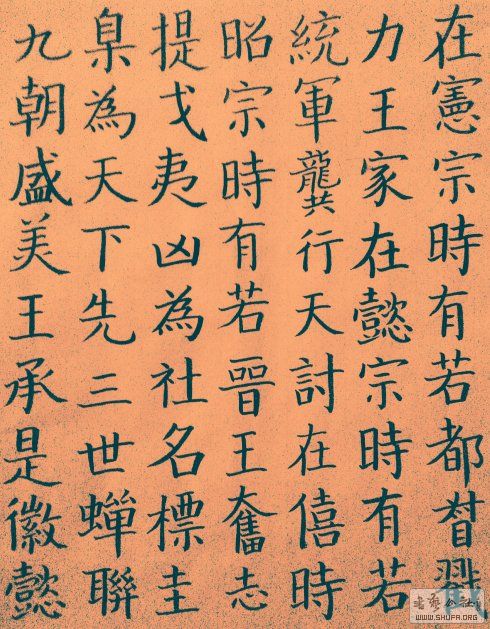 在憲宗時有若都督
力王家在懿宗時有若
統軍龔行天討在僖時
昭宗時有若晉王奮志
提戈夷凶為社名標圭
臬為天下先三世蟬聯
九朝盛美王承是徽懿
WWW.SHUFA.ORG